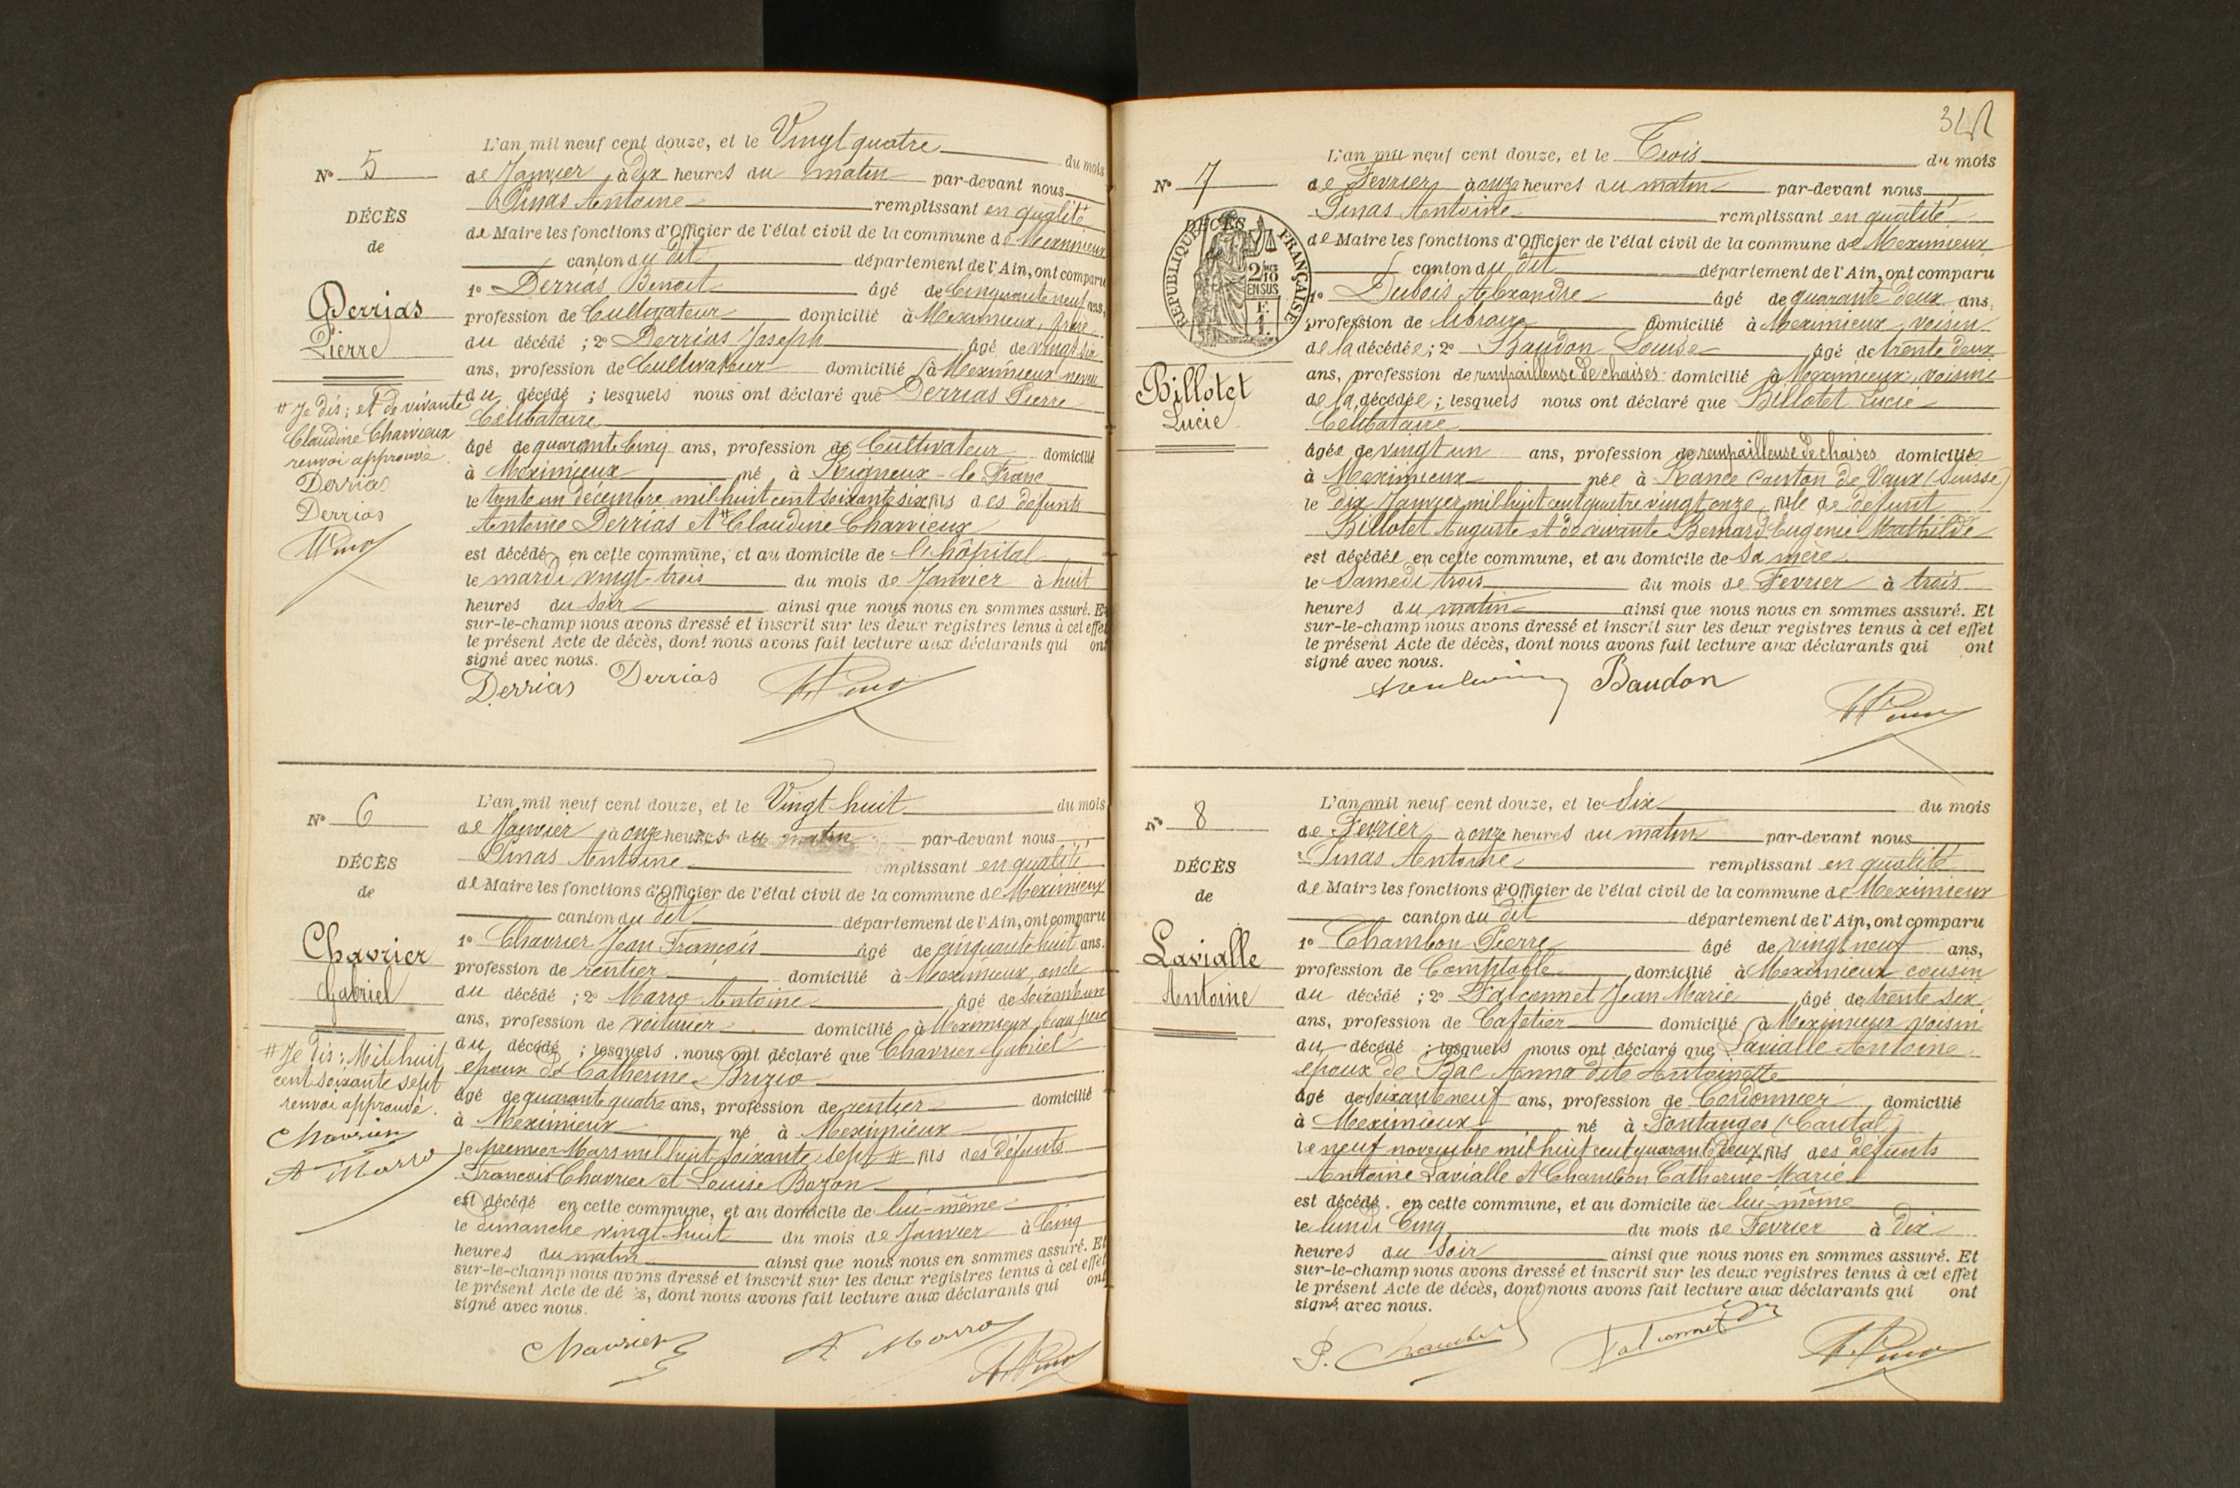 L'an mil neuf cent douze, et le Vingt quatre du mois
N° 5
de Janvier, à dix heures du matin par-devant nous
Pinas Antoine remplissant en qualité
DÉCÈS
de Maire les fonctions d'Officier de l'état civil de la commune de Meximieux
de
canton du dit département de l'Ain, ont comparu
1° Derrias Benoit âgé de Cinquante neuf ans,
Derrias
profession de Cultivateur domicilié à Meximieux, frère
Pierre
du décédé ; 2° Derrias Joseph âgé de vingt six
ans, profession de Cultivateur domicilié à Meximieux neveu
du décédé ; lesquels nous ont déclaré que Derrias Pierre
# Je dis ; et de vivante
Claudine Charvieux
renvoi approuvé.
Derrias
Derrias
Célibataire
âgé de quarante Cinq ans, profession de Cultivateur domicilié
à Meximieux né à Loigneux-le-Franc
le trente un décembre mil huit cent soixante six fils des défunts
Antoine Derrias et # Claudine Charvieux
est décédé en cette commune, et au domicile de l'hôpital
le mardi vingt-trois du mois de Janvier à huit
heures du soir ainsi que nous nous en sommes assuré. Et
sur-le-champ nous avons dressé et inscrit sur les deux registres tenus à cet effet
le présent Acte de décès, dont nous avons fait lecture aux déclarants qui ont
signé avec nous.
Derrias Derrias
L'an mil neuf cent douze, et le Vingt huit du mois
N° 6
de Janvier, à onze heures du matin par-devant nous
Pinas Antoine remplissant en qualité
DÉCÈS
de Maire les fonctions d'Officier de l'état civil de la commune de Meximieux
de
canton du dit département de l'Ain, ont comparu
Chavrier
1° Chavrier Jean François âgé de cinquante huit ans.
profession de rentier domicilié à Meximieux, oncle
Gabriel
du décédé ; 2° Marro Antoine âgé de soixante un
ans, profession de voiturier domicilié à Meximieux beau père
du décédé ; lesquels nous ont déclaré que Chavrier Gabriel
# Je dis : Mil huit
cent soixante sept
renvoi approuvé.
Chavrier
A Marro
époux de Catherine Brizio
âgé de quarante quatre ans, profession de rentier domicilié
à Meximieux né à Meximieux
le premier Mars mil huit soixante sept # fils des défunts
François Chavrier et Louise Bozon
est décédé en cette commune, et au domicile de lui-même
le Dimanche vingt-huit du mois de Janvier à Cinq
heures du matin ainsi que nous nous en sommes assuré. Et
sur-le-champ nous avons dressé et inscrit sur les deux registres tenus à cet effet
le présent Acte de décès, dont nous avons fait lecture aux déclarants qui ont
signé avec nous.
Chavrier A Marro
L'an mil neuf cent douze, et le Trois du mois
N° 7
de Fevrier, à onze heures du matin par-devant nous
Pinas Antoine remplissant en qualité
DÉCÈS
RÉPUBLIQUE FRANÇAISE
2/10 EN SUS
F. 1.
de Maire les fonctions d'Officier de l'état civil de la commune de Meximieux
canton du dit département de l'Ain, ont comparu
1° Dubois Alexandre âgé de quarante deux ans,
profession de libraire domicilié à Meximieux, voisin
de la décédée ; 2° Baudon Louise âgé de trente deux
Billotet
ans, profession de rempailleuse de chaises domicilié à Meximieux, voisine
Lucie
de la décédée ; lesquels nous ont déclaré que Billotet Lucie
Célibataire
âgée de vingt un ans, profession de rempailleuse de chaises domiciliée
à Meximieux née à Rance canton de Vaux (Suisse)
le dix Janvier mil huit cent quatre vingt onze, fille de défunt
Billotet Auguste et de vivante Bernard Eugenie Mathilde
est décédée en cette commune, et au domicile de sa mère
le Samedi trois du mois de Fevrier à trois
heures du matin ainsi que nous nous en sommes assuré. Et
sur-le-champ nous avons dressé et inscrit sur les deux registres tenus à cet effet
le présent Acte de décès, dont nous avons fait lecture aux déclarants qui ont
signé avec nous.
Baudon
L'an mil neuf cent douze, et le Six du mois
N° 8
de Fevrier, à onze heures du matin par-devant nous
Pinas Antoine remplissant en qualité
DÉCÈS
de Maire les fonctions d'Officier de l'état civil de la commune de Meximieux
de
canton du dit département de l'Ain, ont comparu
Lavialle
1° Chambon Pierre âgé de vingt neuf ans,
profession de Comptable domicilié à Meximieux cousin
Antoine
du décédé ; 2° Falconnet Jean Marie âgé de trente six
ans, profession de Cafetier domicilié à Meximieux voisin
du décédé ; lesquels nous ont déclaré que Lavialle Antoine
époux de Bac Anna dite Antoinette
âgé de soixante neuf ans, profession de Cordonnier domicilié
à Meximieux né à Fontanges (Cantal)
le neuf novembre mil huit cent quarante deux, fils des défunts
Antoine Lavialle et Chambon Catherine Marie
est décédé en cette commune, et au domicile de lui-même
le lundi Cinq du mois de Fevrier à dix
heures du soir ainsi que nous nous en sommes assuré. Et
sur-le-champ nous avons dressé et inscrit sur les deux registres tenus à cet effet
le présent Acte de décès, dont nous avons fait lecture aux déclarants qui ont
signé avec nous.
P. Chambon Falconnet